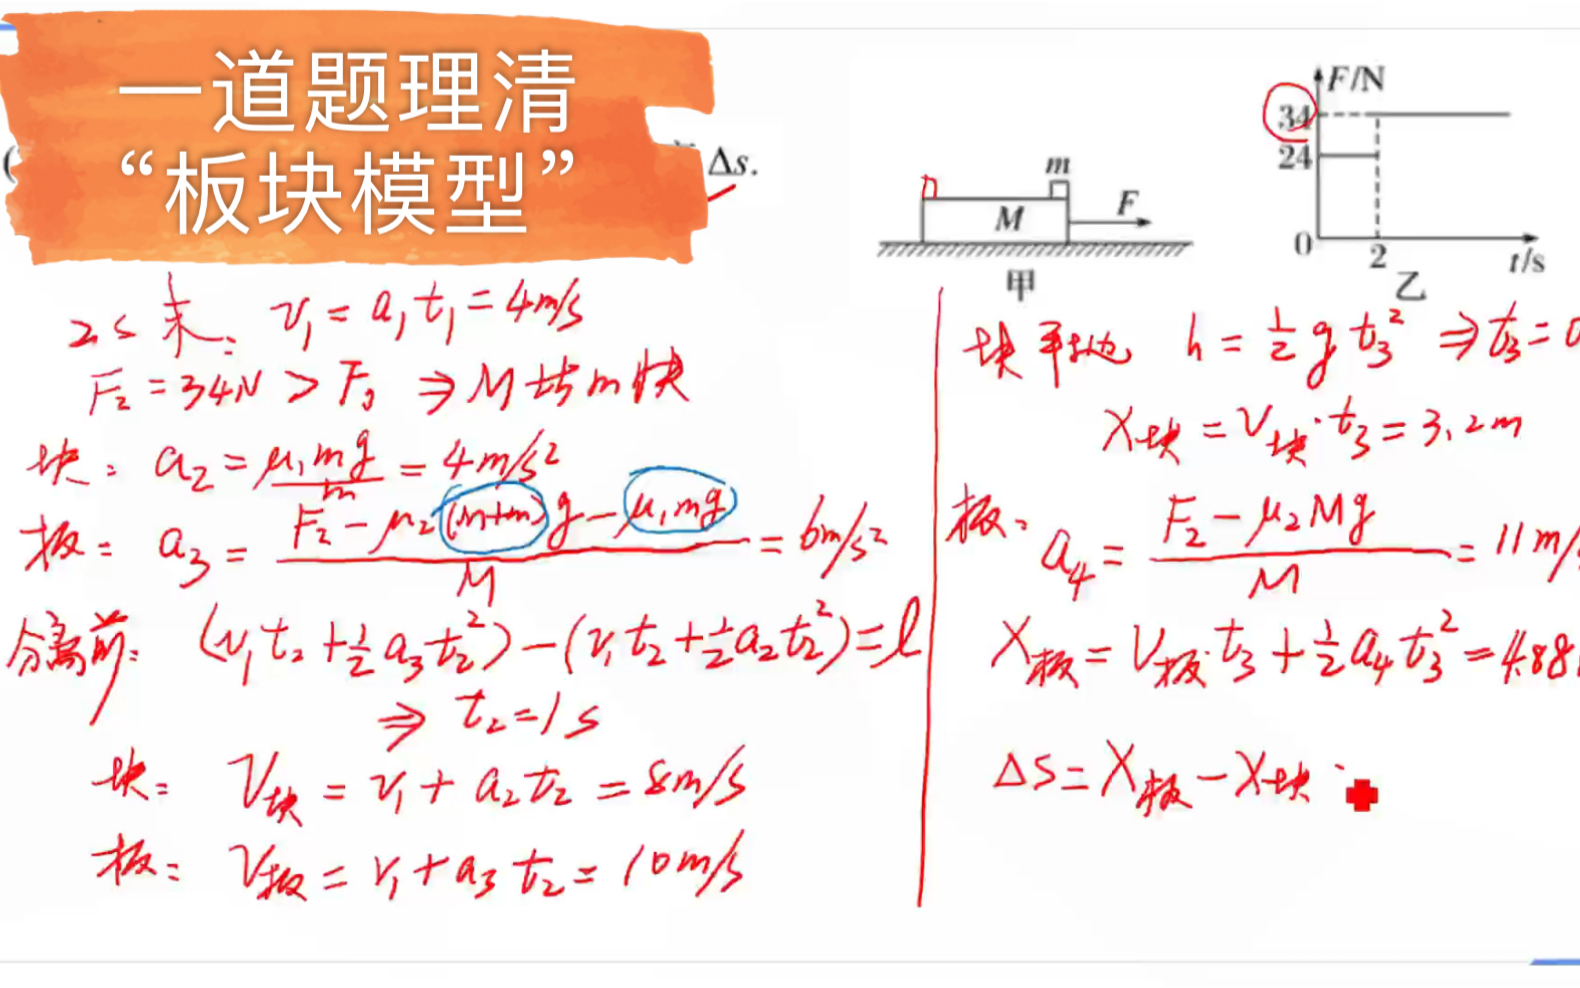 一道题理清
“板块模型”
Δs.
m
M
F
甲
F/N
34
24
0
2
t/s
乙
2s末: v₁ = a₁t₁ = 4m/s
F₂ = 34N > F₀ ⇒ M比m快
块: a₂ = μ₁mg/m = 4m/s²
板: a₃ = (F₂ - μ₂(M+m)g - μ₁mg)/M = 6m/s²
分离前: (v₁t₂ + ½a₃t₂²) - (v₁t₂ + ½a₂t₂²) = l
⇒ t₂ = 1s
块: V块 = v₁ + a₂t₂ = 8m/s
板: V板 = v₁ + a₃t₂ = 10m/s
块平抛 h = ½gt₃² ⇒ t₃ = 0
X块 = V块·t₃ = 3.2m
板: a₄ = (F₂ - μ₂Mg)/M = 11m/s
X板 = V板·t₃ + ½a₄t₃² = 4.88
ΔS = X板 - X块